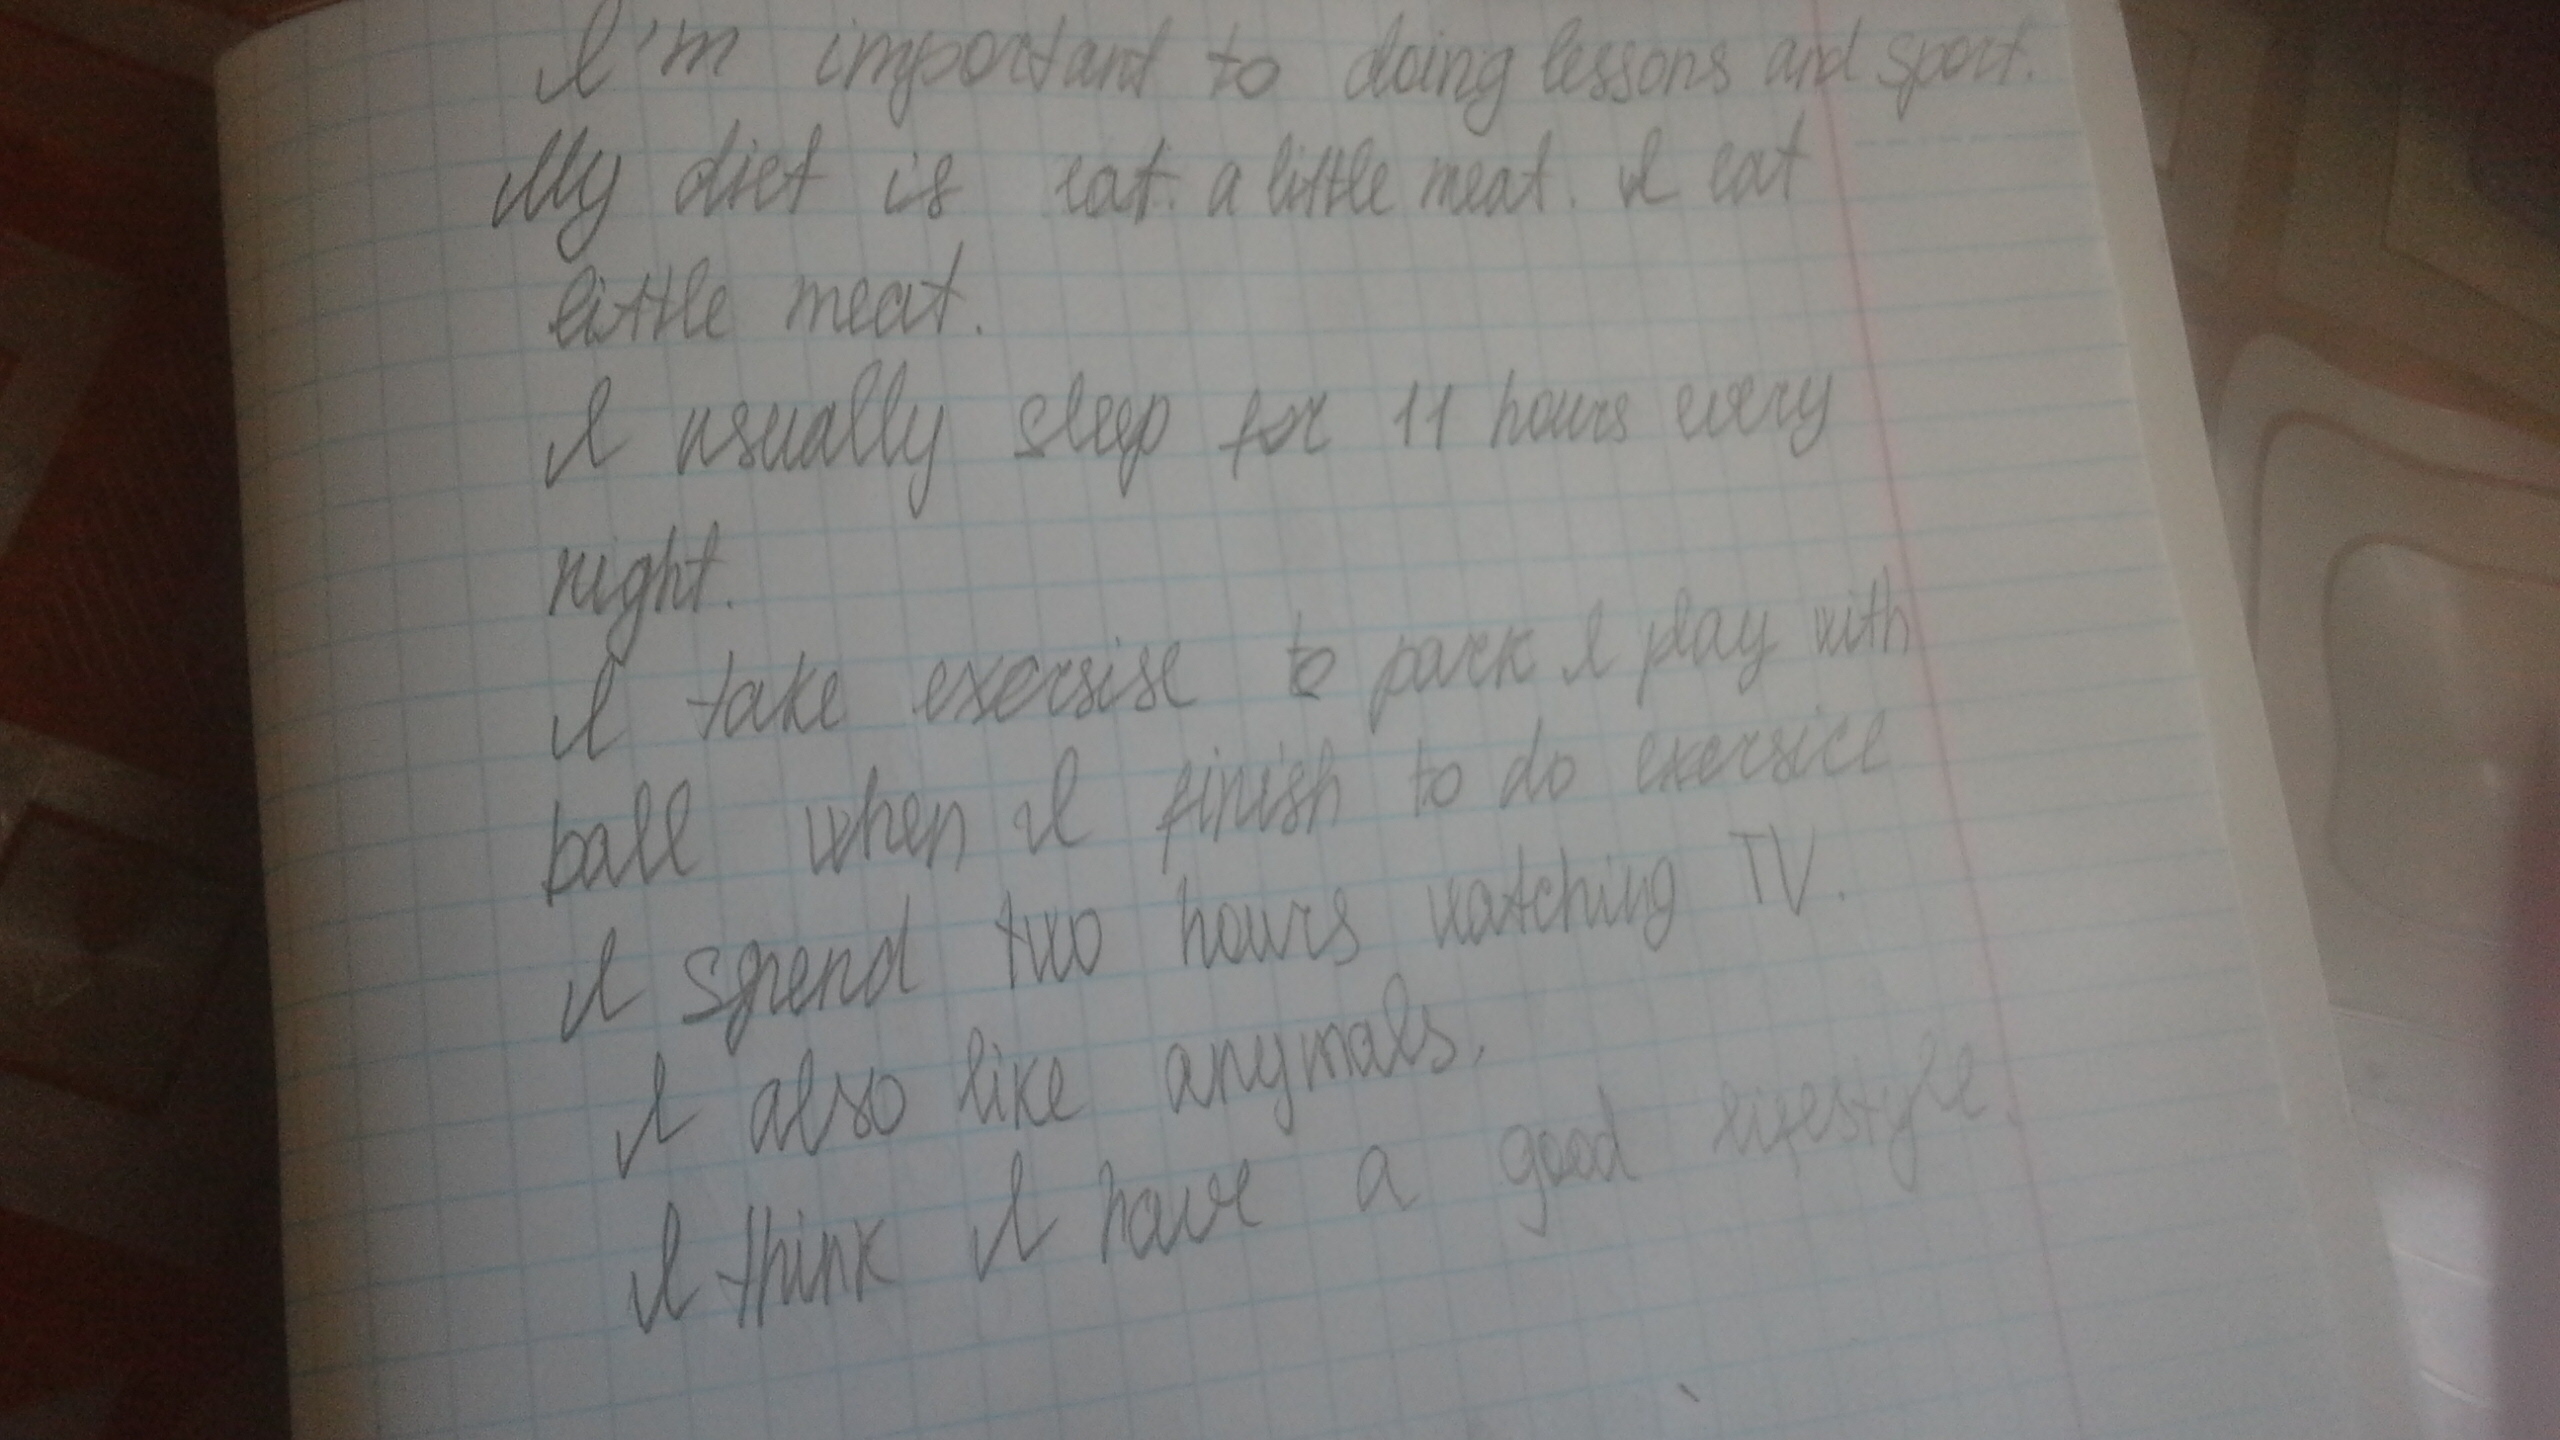 I'm important to doing lessons and sport.
My diet is eat a little meat. I eat
little meat.
I usually sleep for 11 hours every
night.
I take exersise to park I play with
ball when I finish to do exersice
I spend two hours watching TV.
I also like anymals.
I think I have a good lifestyle.